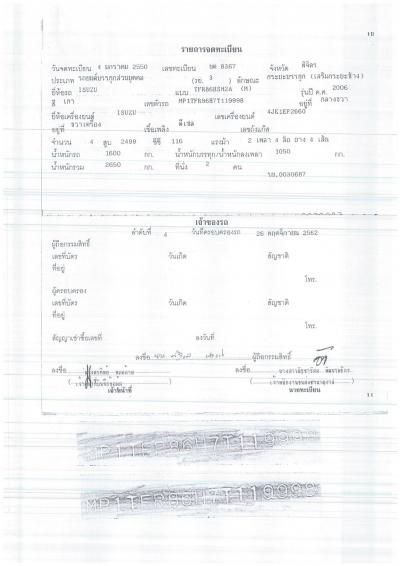 10
รายการจดทะเบียน
วันจดทะเบียน 4 มกราคม 2550 เลขทะเบียน บต 8367 จังหวัด พิจิตร
ประเภท รถยนต์บรรทุกส่วนบุคคล (รย. 3 ) ลักษณะ กระบะบรรทุก (เสริมกระบะข้าง)
ยี่ห้อรถ ISUZU แบบ TFR86HSM2A (M) รุ่นปี ค.ศ. 2006
สี เทา เลขตัวรถ MP1TFR86H7T119998 อยู่ที่ กลางขวา
ยี่ห้อเครื่องยนต์ ISUZU เลขเครื่องยนต์ 4JK1EF2660
อยู่ที่ ขวาเครื่อง เชื้อเพลิง ดีเซล เลขถังแก๊ส
จำนวน 4 สูบ 2499 ซีซี 116 แรงม้า 2 เพลา 4 ล้อ ยาง 4 เส้น
น้ำหนักรถ 1600 กก. น้ำหนักบรรทุก/น้ำหนักลงเพลา 1050 กก.
น้ำหนักรวม 2650 กก. ที่นั่ง 2 คน
นย.0030687
เจ้าของรถ
ลำดับที่ 4 วันที่ครอบครองรถ 26 พฤศจิกายน 2562
ผู้ถือกรรมสิทธิ์
เลขที่บัตร วันเกิด สัญชาติ
ที่อยู่
โทร.
ผู้ครอบครอง
เลขที่บัตร วันเกิด สัญชาติ
ที่อยู่
โทร.
สัญญาเช่าซื้อเลขที่ ลงวันที่
ลงชื่อ ผู้ถือกรรมสิทธิ์
ลงชื่อ ลงชื่อ
เจ้าหน้าที่ นายทะเบียน
11
MP1TFR86H7T119998
MP1TFR86H7T119998